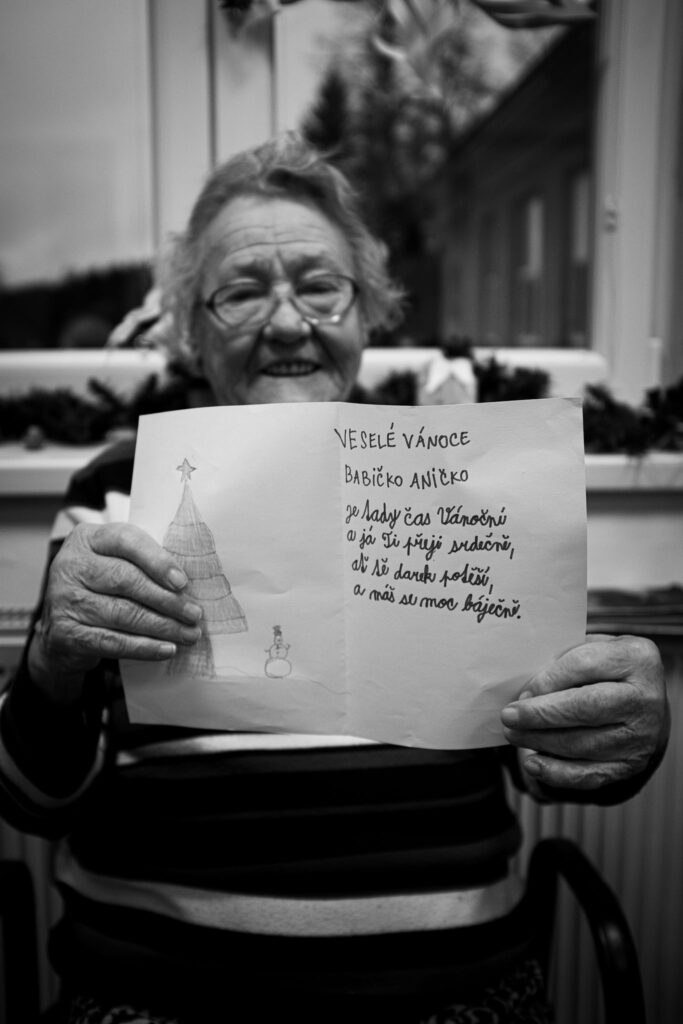 VESELÉ VÁNOCE
BABIČKO ANIČKO
je tady čas Vánoční
a já Ti přeji srdečně,
ať tě darek potěší,
a máš se moc báječně.